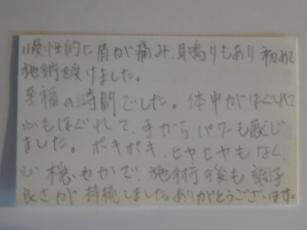 慢性的に肩が痛み、耳鳴りもあり初めて
施術を受けました。
至福の時間でした。体中がほぐれて
心もほぐれて、手からパワーも感じ
ました。ボキボキ、ヒヤヒヤもなく、
心穏やかで、施術後も調子
良さが持続しました。ありがとうございます。